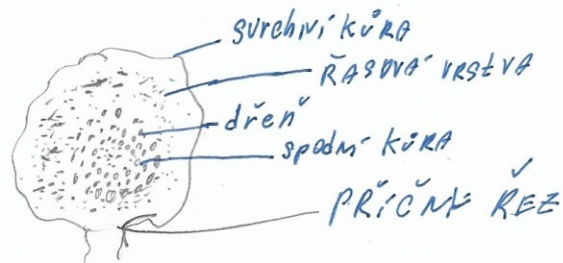 svrchní kůra
ŘASOVÁ VRSTVA
dřeň
spodní kůra
PŘÍČNÝ ŘEZ